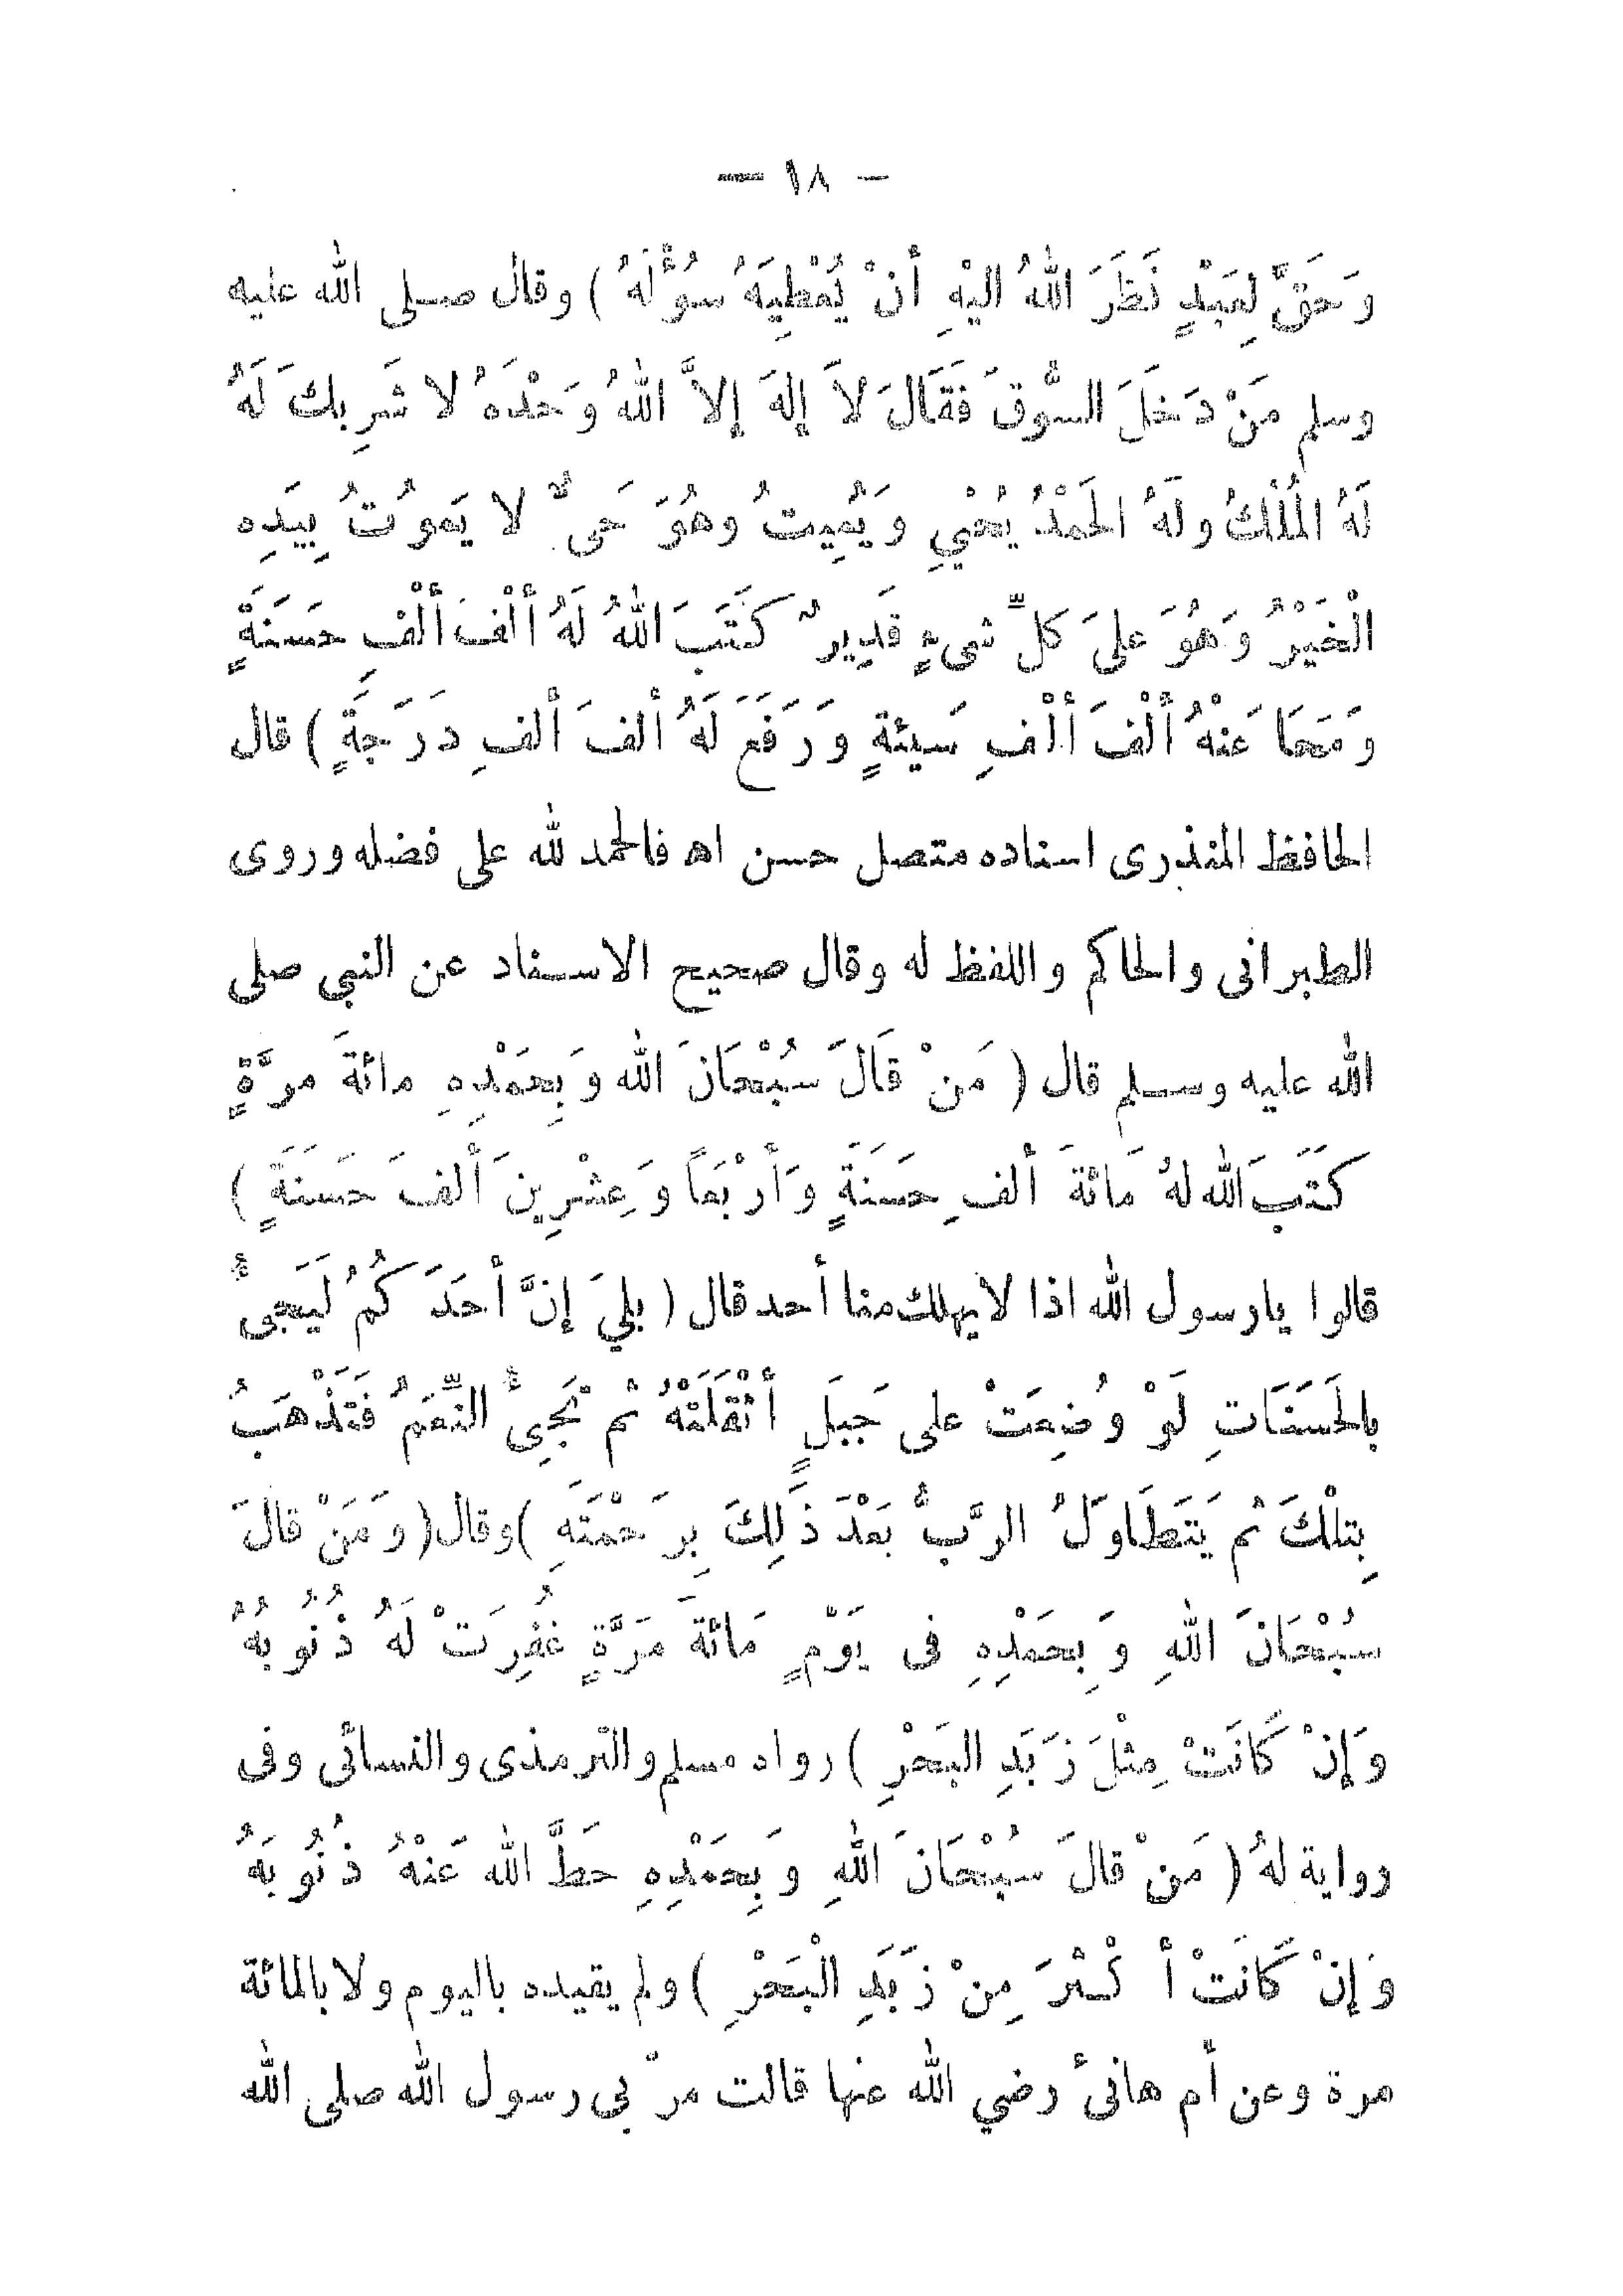 — ١٨ —
وَحَقَّ لِعَبْدٍ نَظَرَ اللهُ اليْهِ أنْ يُعْطِيَهُ سُؤْلَهُ ) وقال صلى الله عليه
وسلم مَنْ دَخَلَ السُّوقَ فَقَالَ لاَ إلهَ إلاَّ اللهُ وَحْدَهُ لا شَرِيكَ لَهُ
لَهُ المُلْكُ ولَهُ الحَمْدُ يُحْيِي وَيُمِيتُ وهُوَ حَىٌّ لا يَموُتُ بِيَدِه
الْخَيْرُ وَهُوَ علىَ كلِّ شىءٍ قَدِيرٌ كَتَبَ اللهُ لَهُ ألْفَ ألْفِ حَسَنَةٍ
وَمَحَا عَنْهُ ألْفَ ألْفِ سَيئةٍ وَرَفَعَ لَهُ ألفَ ألفِ دَرَجَةٍ ) قال
الحافظ المنذرى اسناده متصل حسن اه فالحمد لله على فضله وروى
الطبرانى والحاكم واللفظ له وقال صحيح الاسناد عن النبي صلى
الله عليه وسلم قال ( مَنْ قَالَ سُبْحَانَ الله وَبِحَمْدِهِ مائةَ مرَّةٍ
كَتَبَ الله لهُ مَائةَ ألفِ حَسَنَةٍ وَأرْبَعاً وَعِشْرِينَ ألفَ حَسَنَةٍ )
قالوا يارسول الله اذا لايهلك منا أحد قال ( بلىَ إنَّ أحَدَكُمُ لَيَجىُّ
بالحَسَنَاتِ لَوْ وُضِعَتْ على جَبَلٍ أثْقَلَتْهُ ثم تَجِىُّ النِّعَمُ فَتَذْهَبُ
بِتلْكَ ثم يَتَطَاوَلُ الرَّبُّ بَعْدَ ذَلِكَ بِرَحْمَتَهِ ) وقال ( وَمَنْ قالَ
سُبْحَانَ اللهِ وَبِحَمْدِهِ فى يَوْمٍ مَائةَ مَرَّةٍ غُفِرَتْ لَهُ ذُنُوبهُ
وَإنْ كَانَتْ مِثْلَ زَبَدِ البَحْرِ ) رواه مسلم والترمذى والنسائى وفى
رواية لهُ ( مَنْ قالَ سُبْحَانَ اللهِ وَبِحَمْدِهِ حَطَّ الله عَنْهُ ذُنُوبَهُ
وَإنْ كَانَتْ أكْثرَ مِنْ زَبَدِ الْبَحْرِ ) ولم يقيده باليوم ولا بالمائة
مرة وعن أم هانئ رضي الله عنها قالت مرّ بى رسول الله صلى الله